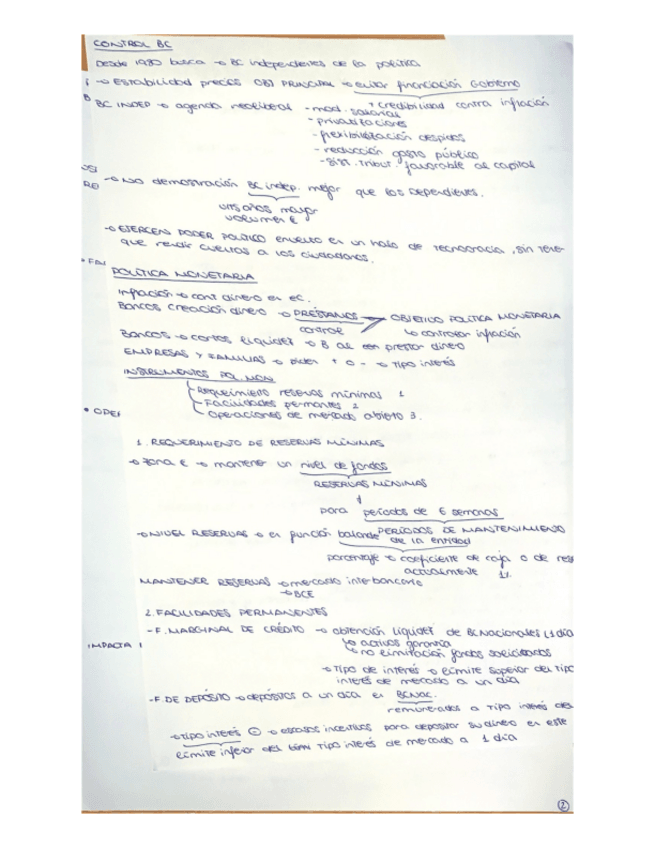 CONTROL BC
Desde 1980 busca → BC independientes de la política
→ ESTABILIDAD PRECIOS OBJ PRINCIPAL → evitar financiación Gobierno
+ credibilidad contra inflación
BC INDEP → agenda neoliberal - mod. salarial
- privatizaciones
- flexibilización despidos
- reducción gasto público
- sist. tribut. favorable al capital
→ NO demostración BC indep. mejor que los Dependientes.
últ. años mayor
volumen €
→ EJERCEN PODER POLÍTICO envuelto en un halo de tecnocracia, sin tener
que rendir cuentas a los ciudadanos.
POLÍTICA MONETARIA
Inflación → cont dinero en ec.
Bancos creación dinero → PRÉSTAMOS OBJETIVO POLÍTICA MONETARIA
control ↳ controlar inflación
Bancos → cortos liquidez → B al con prestar dinero
EMPRESAS Y FAMILIAS → piden + o - → tipo interés
INSTRUMENTOS POL. MON.
- Requerimiento reservas mínimas 1
- Facilidades permanentes 2
- Operaciones de mercado abierto 3.
• OPE
1. REQUERIMIENTO DE RESERVAS MÍNIMAS
→ Zona € → mantener un nivel de fondos
RESERVAS MÍNIMAS
↓
para períodos de 6 semanas
PERÍODOS DE MANTENIMIENTO
→ NIVEL RESERVAS → en función balance de la entidad
porcentaje → coeficiente de caja o de res
actualmente 1%
MANTENER RESERVAS → mercado interbancario
→ BCE
2. FACILIDADES PERMANENTES
- F. MARGINAL DE CRÉDITO → obtención liquidez de BC Nacionales (1 día
↳ activos garantía
IMPACTA
↳ no limitación fondos solicitados
→ Tipo de interés → límite superior del tipo
interés de mercado a un día
- F. DE DEPÓSITO → depósitos a un día en BC NAC.
remunerados a tipo interés del
→ tipo interés ⊖ → escasos incentivos para depositar su dinero en este
límite inferior del tipo interés de mercado a 1 día
②